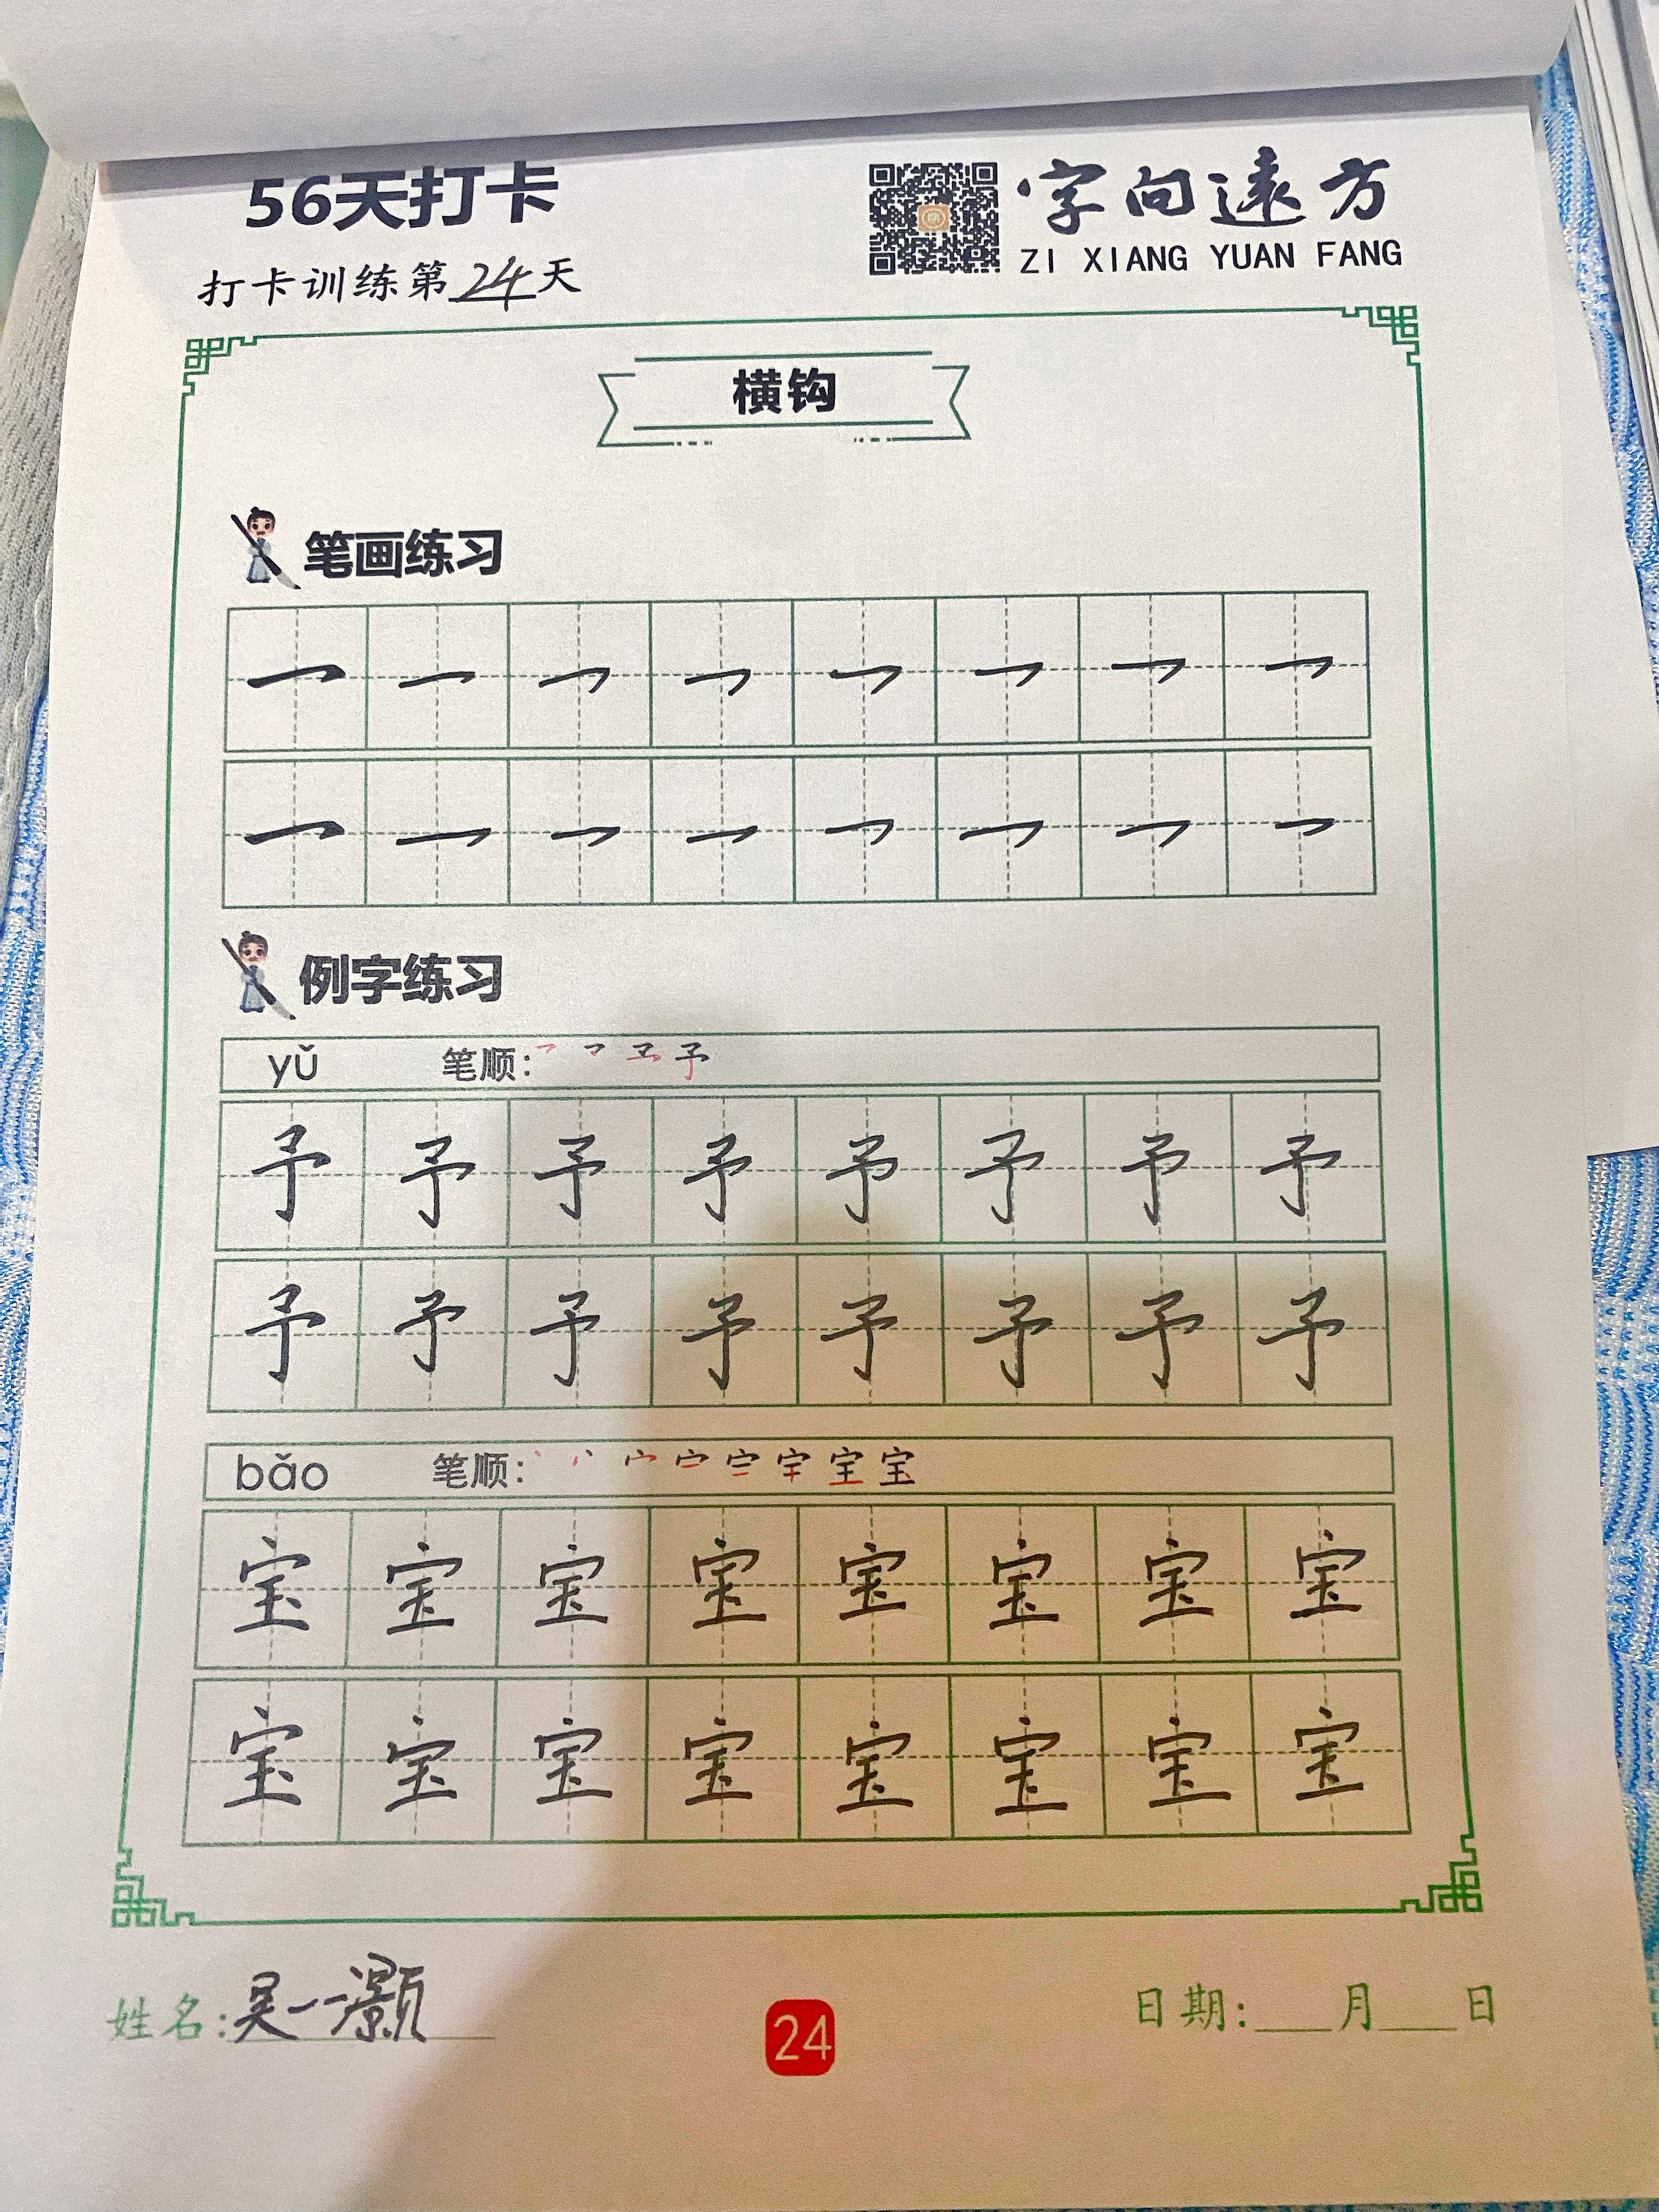 56天打卡
字向远方
ZI XIANG YUAN FANG
打卡训练第24天
横钩
笔画练习
㇖ ㇖ ㇖ ㇖ ㇖ ㇖ ㇖ ㇖
㇖ ㇖ ㇖ ㇖ ㇖ ㇖ ㇖ ㇖
例字练习
yǔ 笔顺:
予 予 予 予 予 予 予 予
予 予 予 予 予 予 予 予
bǎo 笔顺:
宝 宝 宝 宝 宝 宝 宝 宝
宝 宝 宝 宝 宝 宝 宝 宝
姓名:吴一灏
24
日期:___月___日